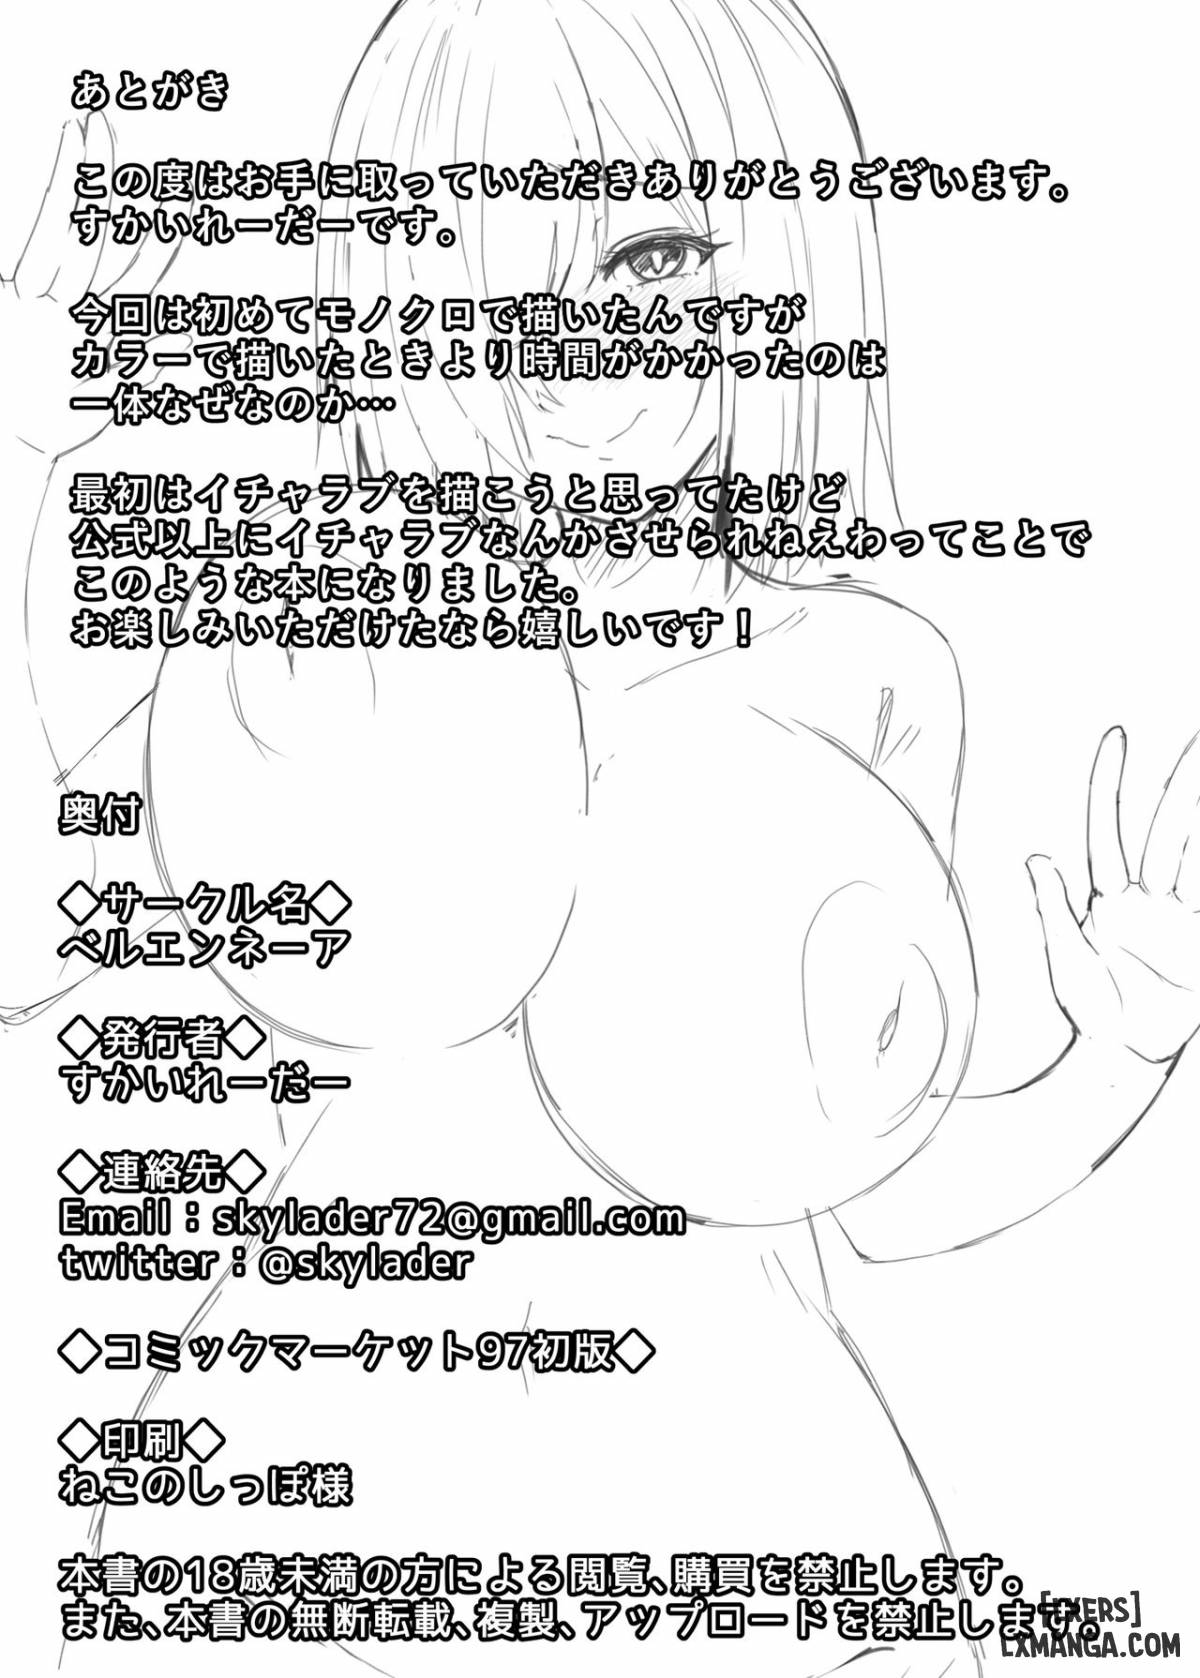 あとがき
この度はお手に取っていただきありがとうございます。
すかいれーだーです。
今回は初めてモノクロで描いたんですが
カラーで描いたときより時間がかかったのは
一体なぜなのか…
最初はイチャラブを描こうと思ってたけど
公式以上にイチャラブなんかさせられねえわってことで
このような本になりました。
お楽しみいただけたなら嬉しいです！
奥付
◇サークル名◇
ベルエンネーア
◇発行者◇
すかいれーだー
◇連絡先◇
Email：skylader72@gmail.com
twitter：@skylader
◇コミックマーケット97初版◇
◇印刷◇
ねこのしっぽ様
本書の18歳未満の方による閲覧、購買を禁止します。
また、本書の無断転載、複製、アップロードを禁止します。
[LXERS]
LXMANGA.COM